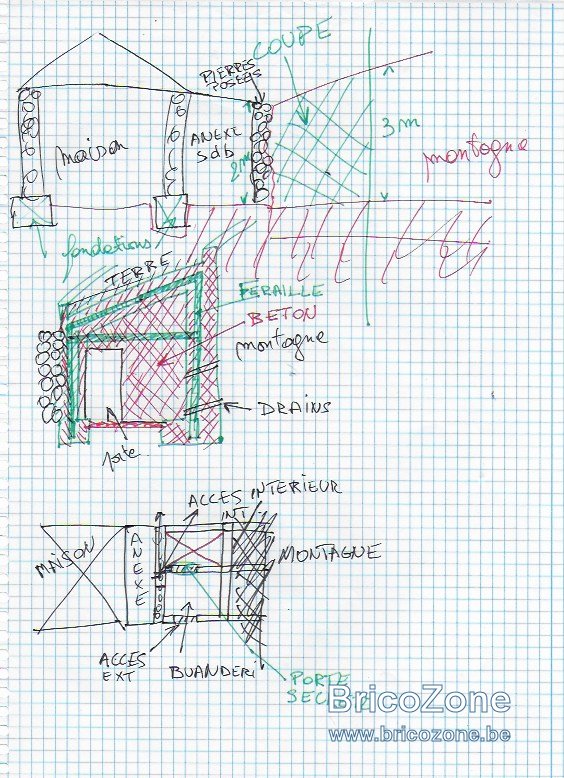 COUPE
PIERRES
POSEES
maison
ANEXE
sdb
2m
3m
montagne
fondations
TERRE
FERAILLE
BETON
montagne
DRAINS
porte
ACCES INTERIEUR
INT
MAISON
ANEXE
MONTAGNE
ACCES
EXT
BUANDERI
PORTE
BricoZone
www.bricozone.be